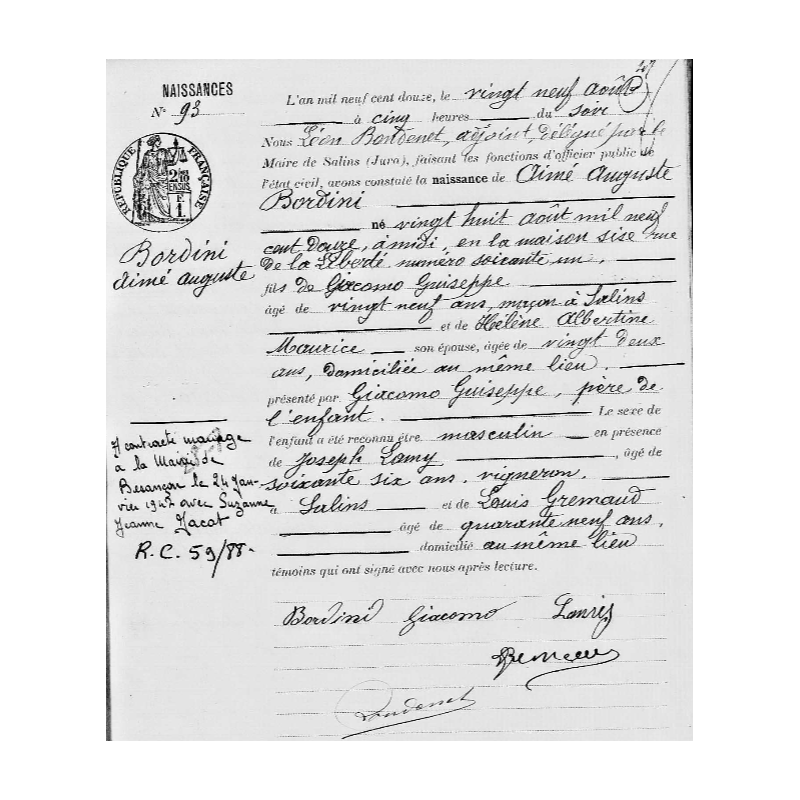 NAISSANCES
N° 93
RÉPUBLIQUE FRANÇAISE
Bordini
Aimé Auguste
L'an mil neuf cent douze, le vingt neuf août
à cinq heures du soir
Nous Léon Bondenet, adjoint, délégué par le
Maire de Salins (Jura), faisant les fonctions d'officier public de
l'état civil, avons constaté la naissance de Aimé Auguste
Bordini
né vingt huit août mil neuf
cent douze, à midi, en la maison sise rue
de la Liberté numéro soixante un,
fils de Giacomo Guiseppe
âgé de vingt neuf ans, maçon à Salins
et de Hélène Albertine
Maurice son épouse, âgée de vingt deux
ans, domiciliée au même lieu.
présenté par Giacomo Guiseppe, père de
l'enfant. Le sexe de
l'enfant a été reconnu être masculin en présence
de Joseph Lamy, âgé de
soixante six ans, vigneron,
à Salins et de Louis Gremaud
âgé de quarante neuf ans,
domicilié au même lieu
témoins qui ont signé avec nous après lecture.
A contracté mariage
à la Mairie de
Besançon le 24 Jan-
vier 1942 avec Suzanne
Jeanne Jacot
R.C. 59/88.
Bordini Giacomo
Bondenet